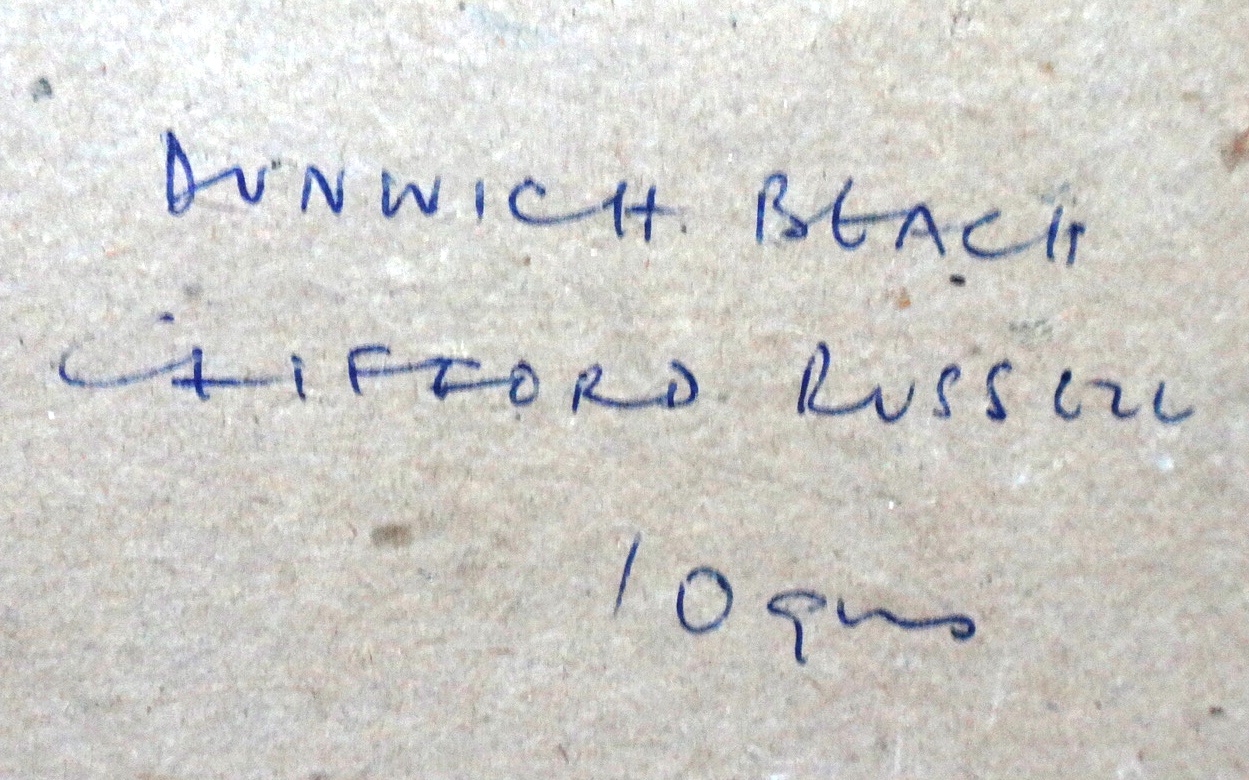 DUNWICH BEACH
CLIFFORD RUSSELL
10 gns